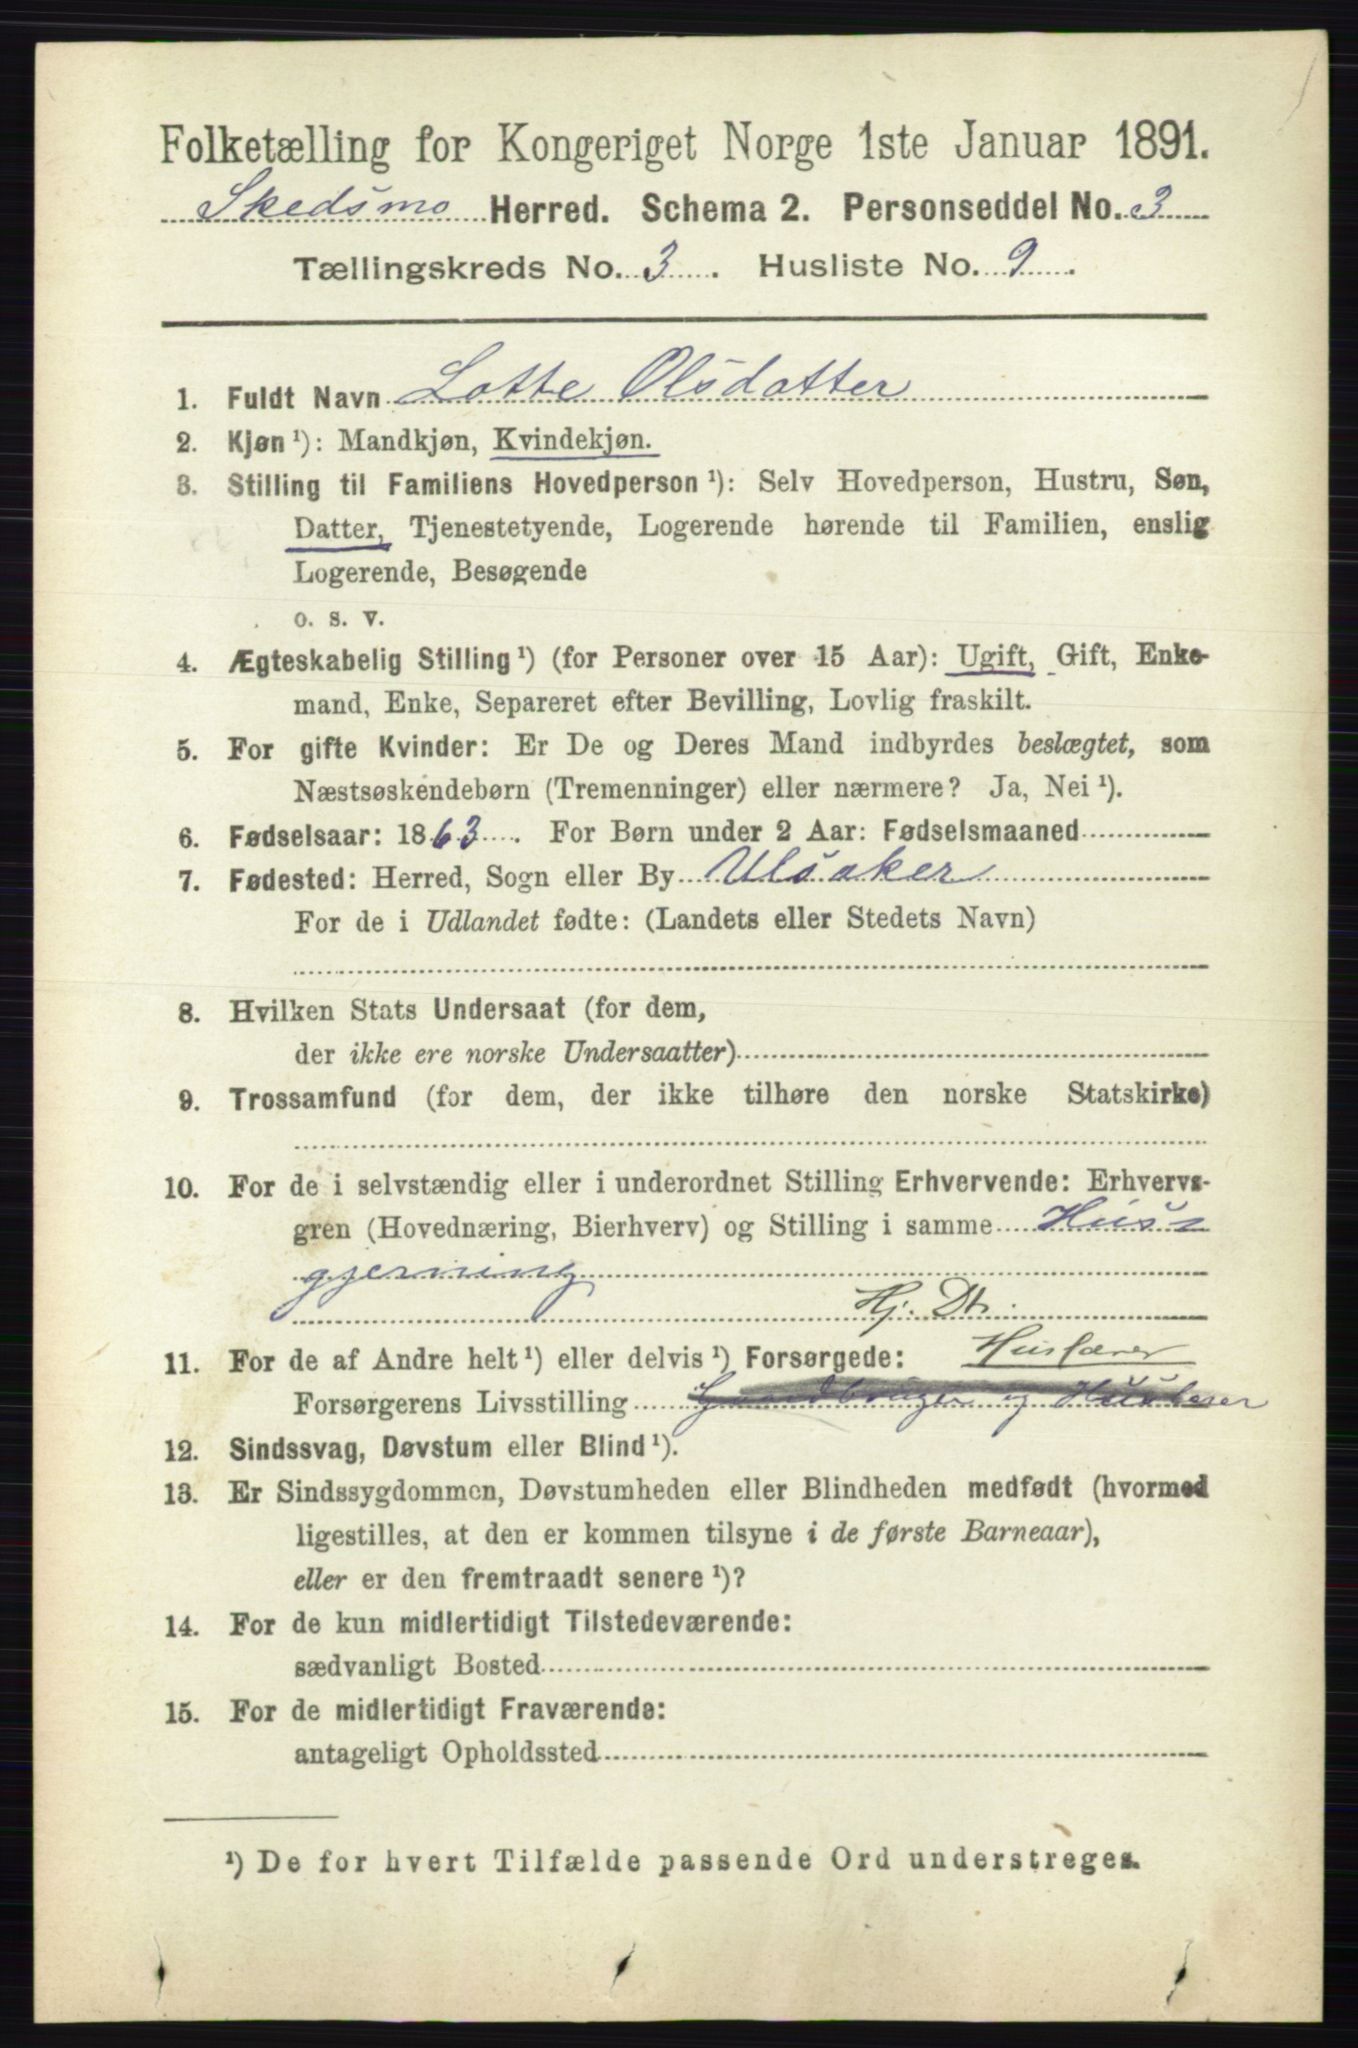 Folketælling for Kongeriget Norge 1ste Januar 1891.
Skedsmo Herred. Schema 2. Personseddel No. 3
Tællingskreds No. 3. Husliste No. 9.
1. Fuldt Navn Lotte Olsdatter
2. Kjøn ¹): Mandkjøn, Kvindekjøn.
3. Stilling til Familiens Hovedperson ¹): Selv Hovedperson, Hustru, Søn,
Datter, Tjenestetyende, Logerende hørende til Familien, enslig
Logerende, Besøgende
o. s. v.
4. Ægteskabelig Stilling ¹) (for Personer over 15 Aar): Ugift, Gift, Enke-
mand, Enke, Separeret efter Bevilling, Lovlig fraskilt.
5. For gifte Kvinder: Er De og Deres Mand indbyrdes beslægtet, som
Næstsøskendebørn (Tremenninger) eller nærmere? Ja, Nei ¹).
6. Fødselsaar: 1863. For Børn under 2 Aar: Fødselsmaaned
7. Fødested: Herred, Sogn eller By Ulsaker
For de i Udlandet fødte: (Landets eller Stedets Navn)
8. Hvilken Stats Undersaat (for dem,
der ikke ere norske Undersaatter)
9. Trossamfund (for dem, der ikke tilhøre den norske Statskirke)
10. For de i selvstændig eller i underordnet Stilling Erhvervende: Erhvervs-
gren (Hovednæring, Bierhverv) og Stilling i samme Hus-
gjerning
Hj. Dt.
11. For de af Andre helt ¹) eller delvis ¹) Forsørgede: Husfærer
Forsørgerens Livsstilling Gaardbruger og
12. Sindssvag, Døvstum eller Blind ¹).
13. Er Sindssygdommen, Døvstumheden eller Blindheden medfødt (hvormed
ligestilles, at den er kommen tilsyne i de første Barneaar),
eller er den fremtraadt senere ¹)?
14. For de kun midlertidigt Tilstedeværende:
sædvanligt Bosted
15. For de midlertidigt Fraværende:
antageligt Opholdssted
¹) De for hvert Tilfælde passende Ord understreges.